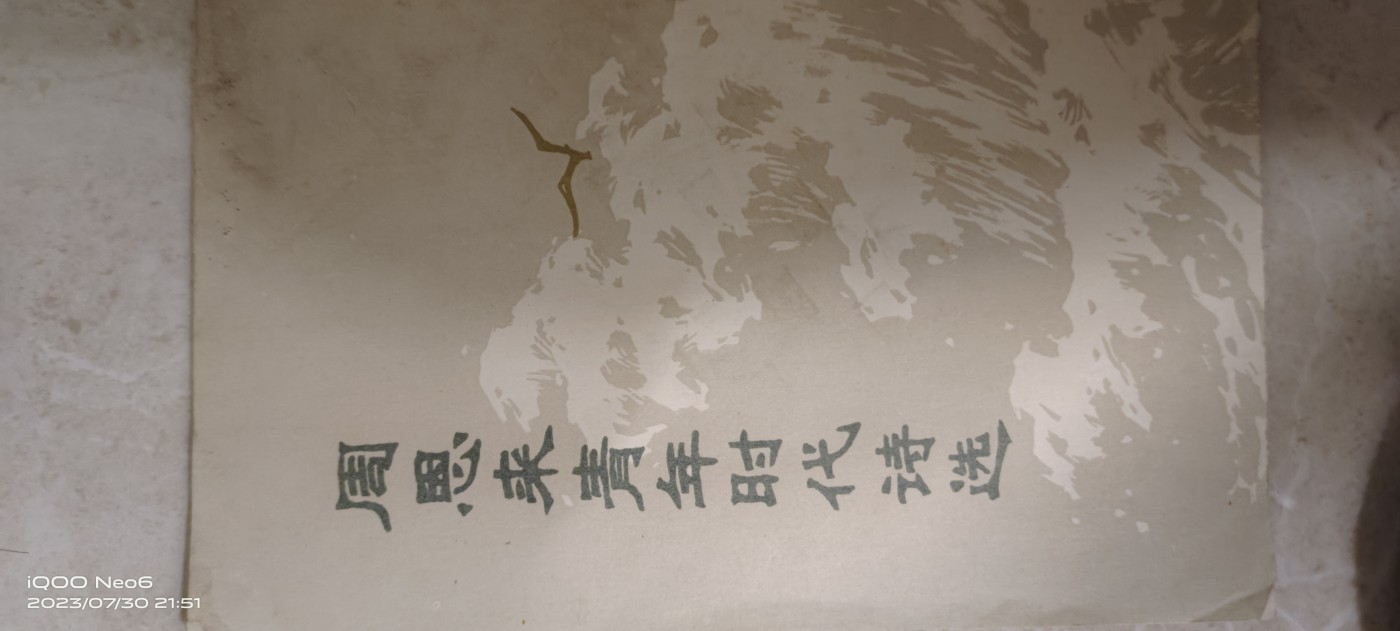 周恩来青年时代诗选
iQOO Neo6
2023/07/30 21:51